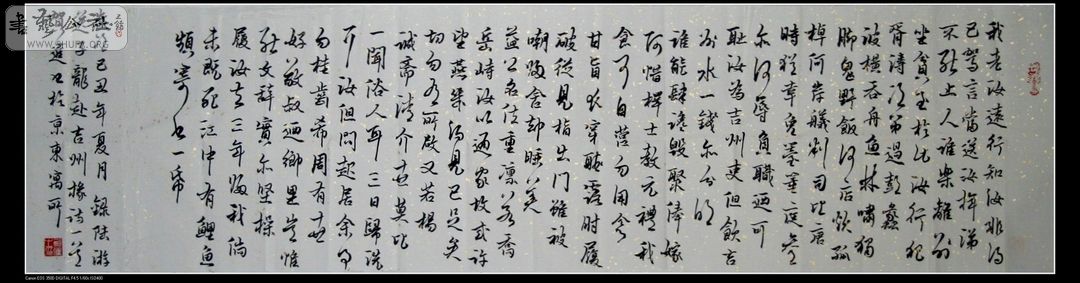 我老汝遠行知汝非得
已駕言當送汝揮涕
不能止人誰樂離別
坐貧至於此汝行犯
胥濤次第過彭蠡
波橫吞舟魚林嘯獨
腳鬼野飯何店炊孤
棹何岸艤判司比唐
時猶幸免笞箠庭參
亦何辱負職迺可
耻汝為吉州吏但飲吉
州水一錢亦分明
誰能肆讒毀聚俸嫁
阿惜擇士教元禮我
食可自營勿用念
甘旨衣穿聽露肘履
破從見指出門雖被
嘲歸舍却睡美
益公名位重凜若喬
岳峙汝以通家故或許
望燕几得見已足矣
切勿有所啟又若楊
誠齋清介世莫比
一聞俗人耳三日歸洗
耳汝但問起居余事
勿挂齒希周有世
好敬叔迺鄉里豈惟
能文辭實亦堅操
履汝去三年歸我倘
未既死江中有鯉魚
頻寄書一帋
己丑年夏月錄陸游
子龍赴吉州掾詩一首
於京東寓所
WWW.SHUFA.ORG
Canon EOS 350D DIGITAL F4.5 1/60s ISO400